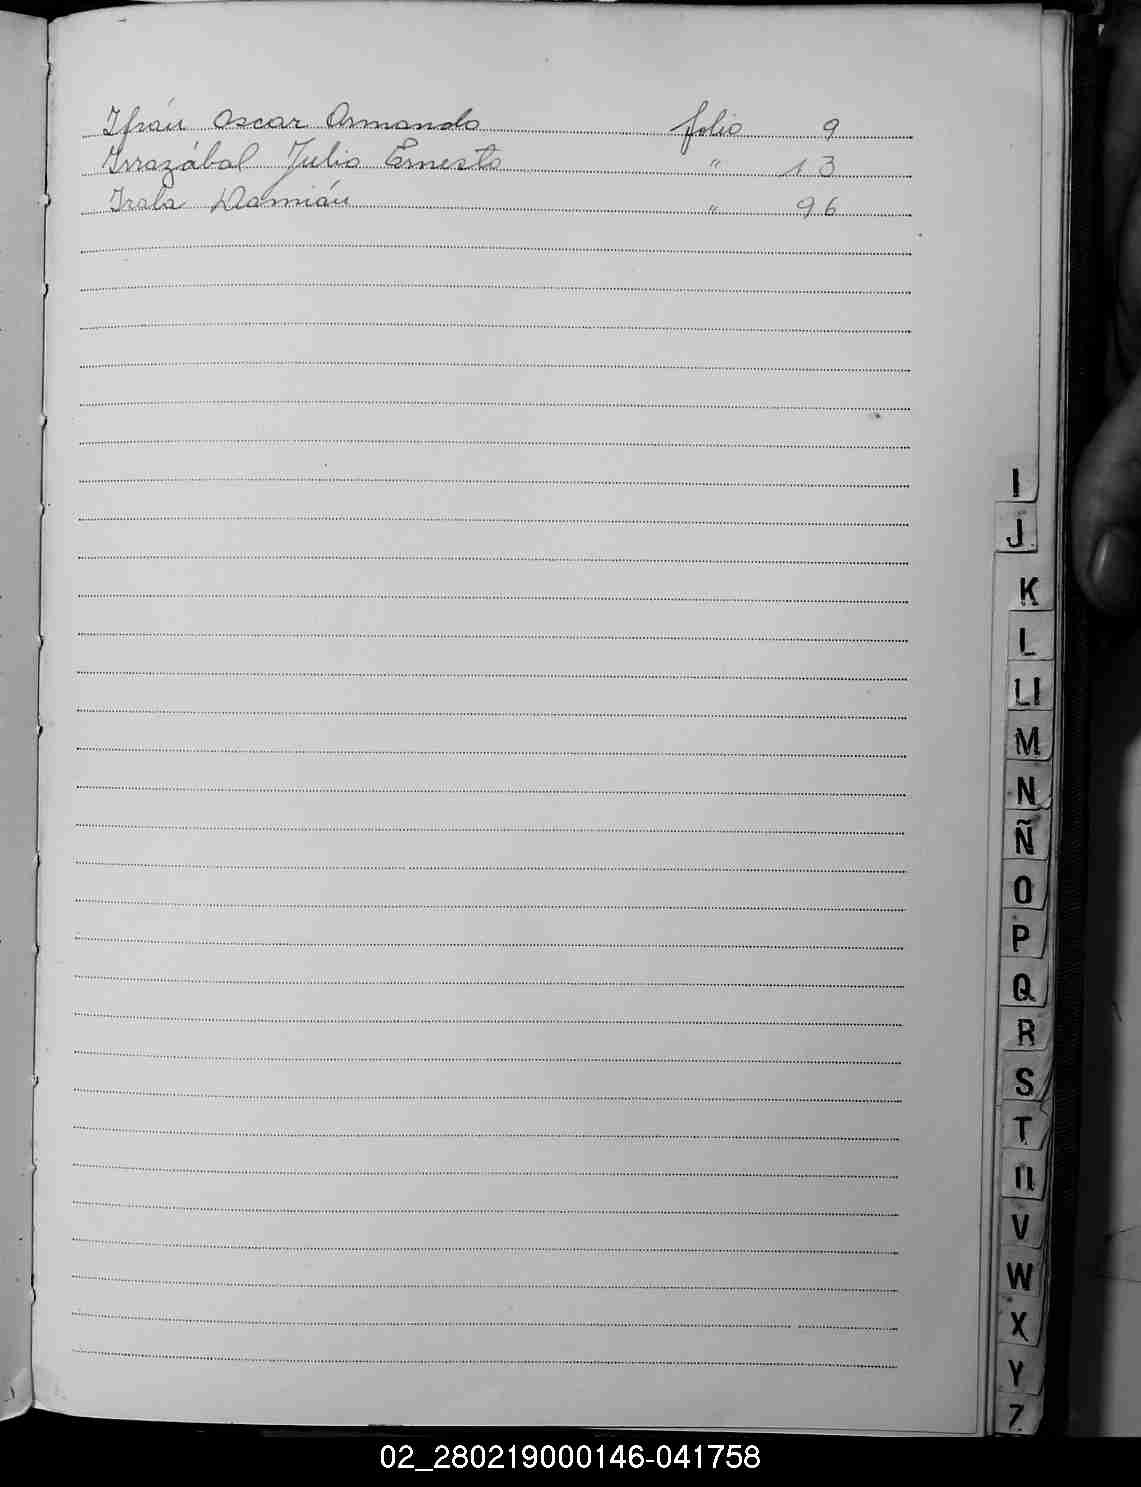 Ifrán Oscar Armando folio 9
Irrazábal Julio Ernesto " 13
Irala Damián " 96
I
J
K
L
Ll
M
N
Ñ
O
P
Q
R
S
T
U
V
W
X
Y
Z
02_280219000146-041758